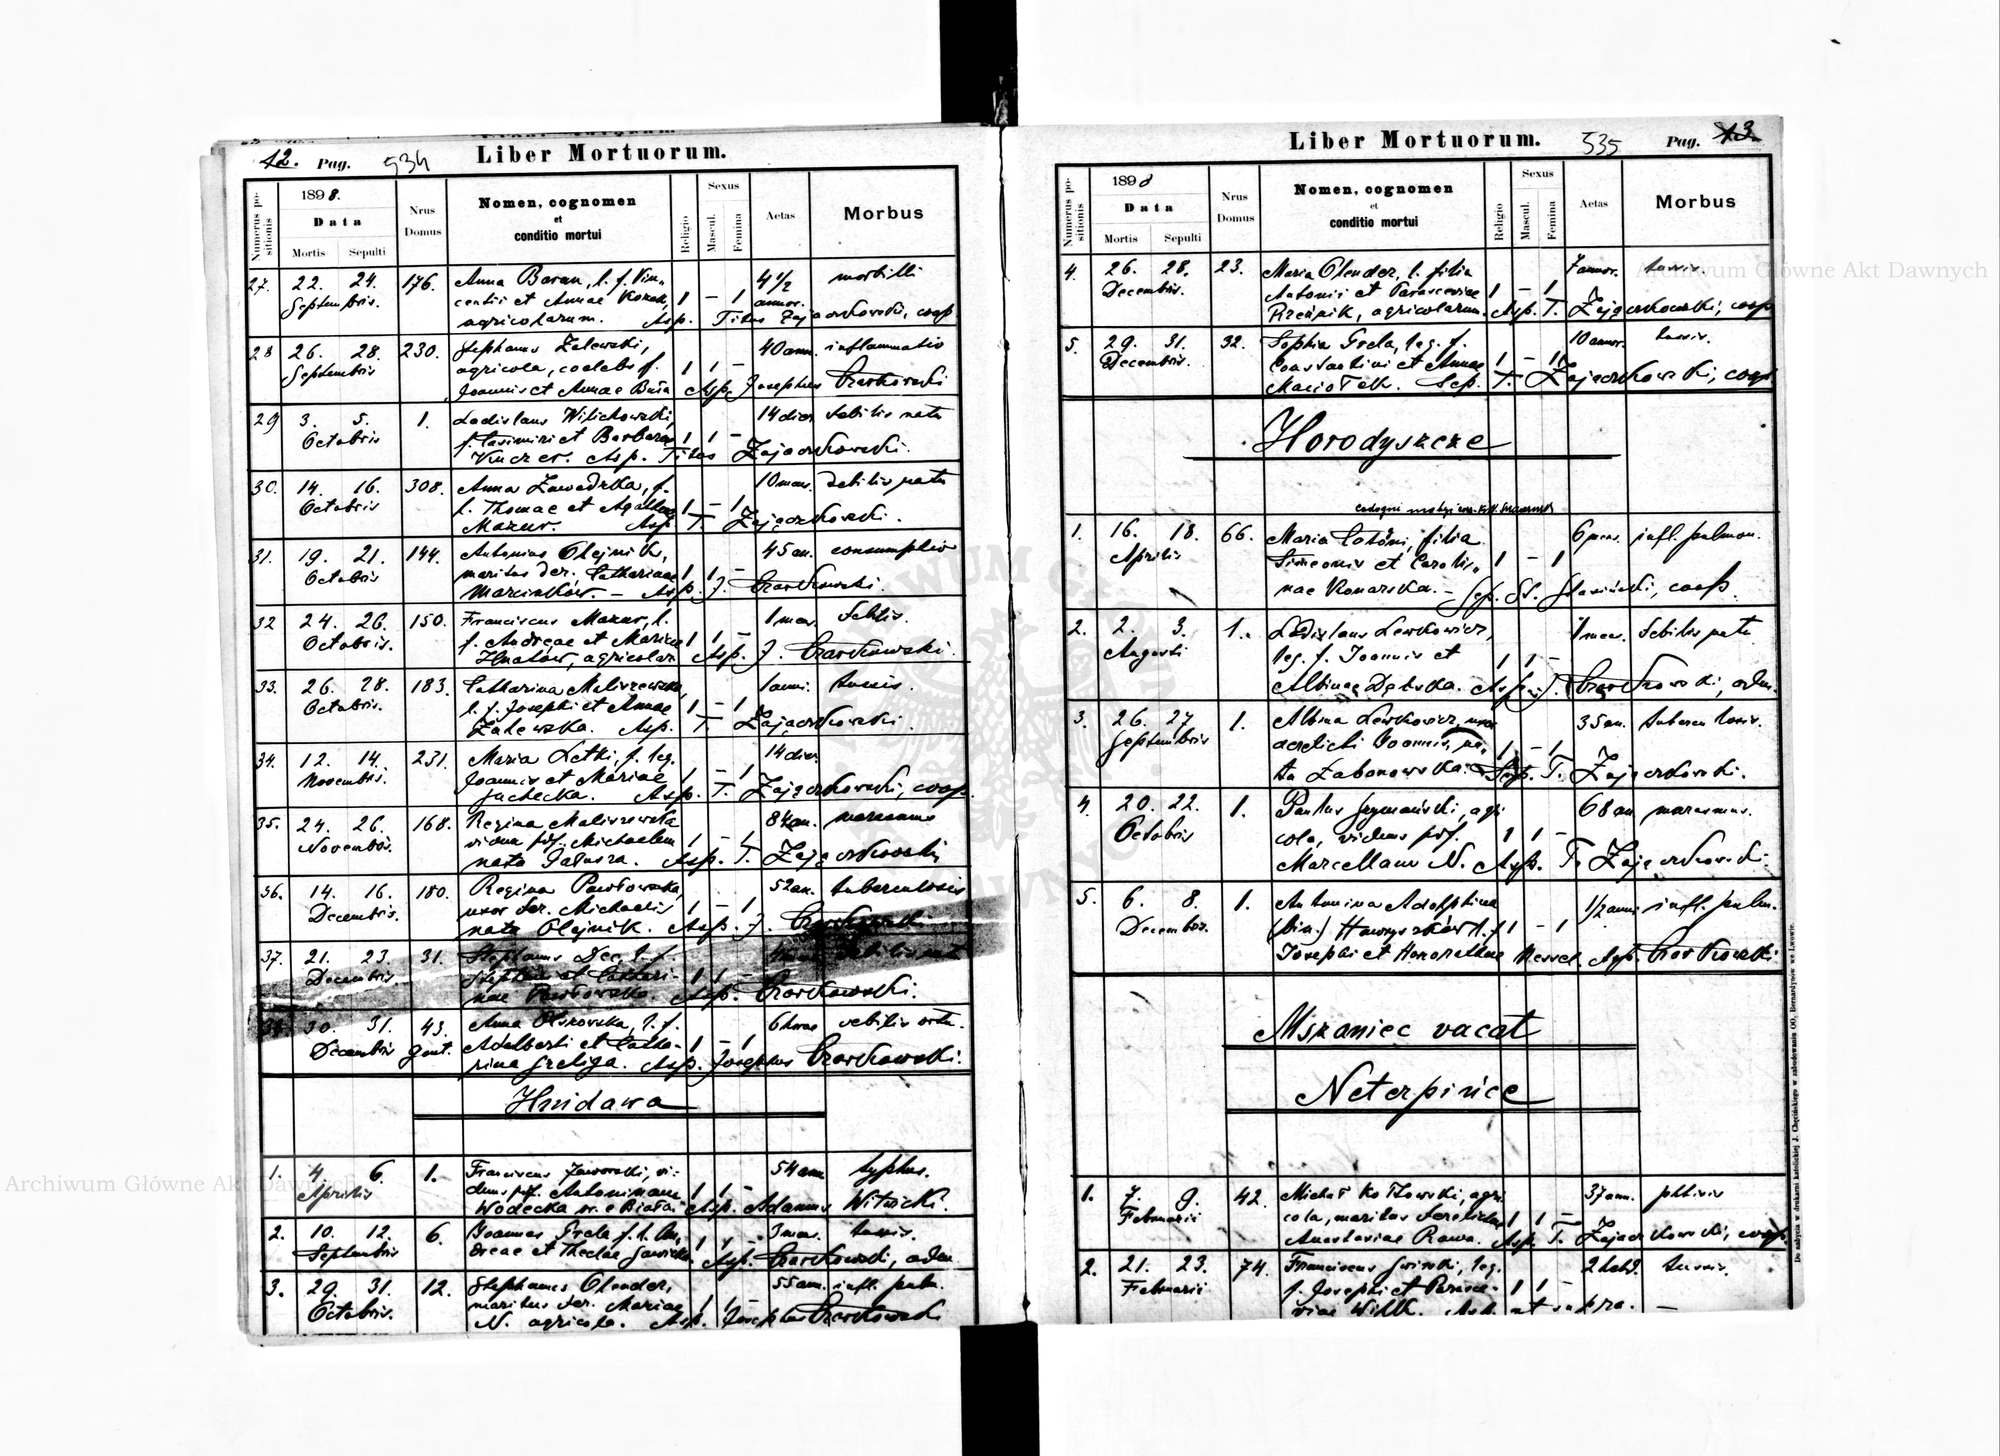 12. Pag. 534 Liber Mortuorum.
Numerus positionis
1898.
Data
Mortis Sepulti
Nrus Domus
Nomen, cognomen
et
conditio mortui
Religio
Sexus
Mascul. Femina
Aetas
Morbus
27. 22. 24. 176. Anna Baran, l. f. Vin- 4 1/2 morbilli
Septembris. centii et Annae Kozak, 1 – 1 annor.
agricolarum. Asp. Titus Zajączkowski, coop.
28 26. 28. 230. Stephanus Zalewski, 40 ann. inflammatio
Septembris agricola, coelebs f. 1 1 –
Joannis et Annae Asp. Josephus Czarkowski
29 3. 5. 1. Ladislaus 14 dier. debilis natu
Octobris f. Casimiri et Barbara 1 1 –
Asp. Titus Zajączkowski.
30. 14. 16. 308. Anna Zawadzka, f. 10 mens. debilis natu
Octobris l. Thomae et Agatha 1 – 1
Mazur. Asp. T. Zajączkowski.
31. 19. 21. 144. Antonius Olejnik, 45 an. consumptio
Octobris maritus der. Catharinae 1 1 –
Marcinków. – Asp. J. Czarkowski.
32 24. 26. 150. Franciscus Mazur, l. 1 mens. debilis.
Octobris. f. Andreae et Mariae 1 1 –
Hnatów, agricolar. Asp. J. Czarkowski.
33. 26. 28. 183. Catharina Maliszewska, 1 anni. tussis.
Octobris. l. f. Josephi et Annae 1 – 1
Zalewska. Asp. T. Zajączkowski
34. 12. 14. 231. Maria Letki, f. leg. 14 dier.
Novembris. Joannis et Mariae 1 – 1
Suchecka. Asp. T. Zajączkowski, coop.
35. 24. 26. 168. Regina Maliszewska 84 an. marasmus
Novembris. vidua p. Michaelem 1 – 1
nata Asp. T. Zajączkowski
36. 14. 16. 180. Regina Pawłowska, 52 an. tuberculosis
Decembris. uxor der. Michaelis 1 – 1
nata Olejnik. Asp. J. Czarkowski
37. 21. 23. 31. Stephanus Dec, l. f. debilis nat.
Decembris. Stephani et Cathari- 1 1 –
nae Pawłowska. Asp. Czarkowski.
38. 30. 31. 43. Anna Olszowska, l. f. 6 horae debilis
Decembris Gont. Adalberti et Catha- 1 – 1
rina Greliga. Asp. Josephus Czarkowski.
Hnidawa
1. 4 6. 1. Franciscus Jaworski, vi- 54 ann. typhus.
Aprilis duus p. Antoninam 1 1 –
Wodecka Asp. Adamus Witwicki.
2. 10. 12. 6. Joannes Grela f. l. An- 3 mens. tussis.
Septembris dreae et Theclae 1 1 – Asp. Czarkowski, adm.
3. 29. 31. 12. Stephanus Olender, 55 ann. infl. pulm.
Octobris. maritus der. Mariae 1 1 –
N. agricola. Asp. Josephus Czarkowski
Liber Mortuorum. 535 Pag. 13.
Numerus positionis
1898
Data
Mortis Sepulti
Nrus Domus
Nomen, cognomen
et
conditio mortui
Religio
Sexus
Mascul. Femina
Aetas
Morbus
4. 26. 28. 23. Maria Olender, l. filia 7 annor. tussis.
Decembris. Antonii et Parasceviae 1 – 1
Rzeźnik, agricolarum. Asp. T. Zajączkowski, coop
5. 29. 31. 32. Sophia Grela, leg. f. 10 annor. tussis.
Decembris. Constantini et Annae 1 – 1
Maciołek. Sep. T. Zajączkowski, coop.
Horodyszcze
1. 16. 18. 66. Maria filia 6 mens. infl. pulmon.
Aprilis Simeonis et Caroli- 1 – 1
nae Konarska. – Sep. St. coop.
2. 2. 3. 1. Ladislaus Lewkowicz, 7 mens. debilis natu
Augusti leg. f. Joannis et 1 1 –
Albinae Dębska. Asp. J. Czarkowski, adm.
3. 26. 27 1. Albina Lewkowicz, uxor 35 an. tuberculosis.
Septembris derelicti Joannis, na- 1 – 1
ta Łabanowska. Sep. T. Zajączkowski.
4 20. 22. 1. Paulus Szymański, agri- 68 an. marasmus.
Octobris cola, viduus p. 1 1 –
Marcellam N. Asp. T. Zajączkowski.
5. 6. 8. 1. Antonina Adolphina 1/2 anni infl. pulm.
Decembris. (bin.) Hawryszków l. f. 1 – 1
Josephi et Honorathae Asp. Czarkowski
Mszaniec vacat
Neterpińce
1. 7. 9. 42. Michał Kozłowski, agri- 37 ann. phtisis
Februarii cola, maritus derelictae 1 1 –
Anastasiae Rawa. Asp. T. Zajączkowski, coop.
2. 21. 23. 74. Franciscus leg. 2 hebd. tussis.
Februarii f. Josephi et Parasce- 1 1 –
viae Wilk. Asp. ut supra. –
Do nabycia w drukarni katolickiej J. Chęcińskiego w zabudowaniu OO. Bernardynów we Lwowie.
Archiwum Główne Akt Dawnych
Archiwum Główne Akt Dawnych
ARCHIWUM GŁÓWNE AKT DAWNYCH